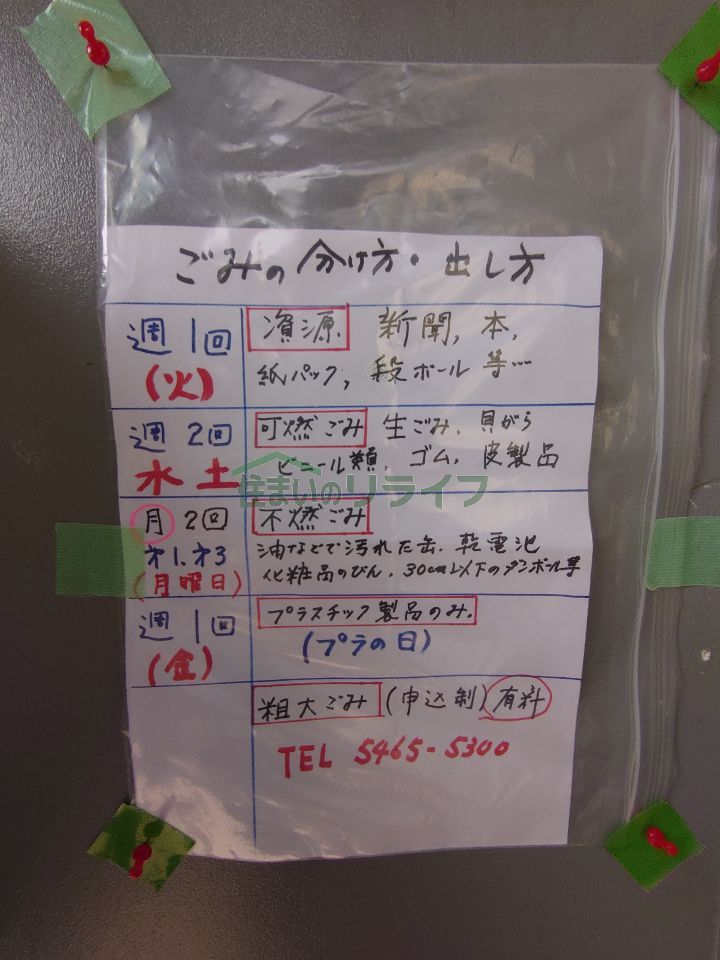 ごみの分け方・出し方
週1回
(火)
資源 新聞, 本,
紙パック, 段ボール 等…
週2回
水 土
可燃ごみ 生ごみ、貝がら
ビニール類、ゴム、皮製品
月2回
オ1.オ3
(月曜日)
不燃ごみ
油などで汚れた缶、乾電池
化粧品のびん、30cm以下のダンボール等
週1回
(金)
プラスチック製品のみ.
(プラの日)
粗大ごみ (申込制) 有料
TEL 5465-5300
住まいのリライフ